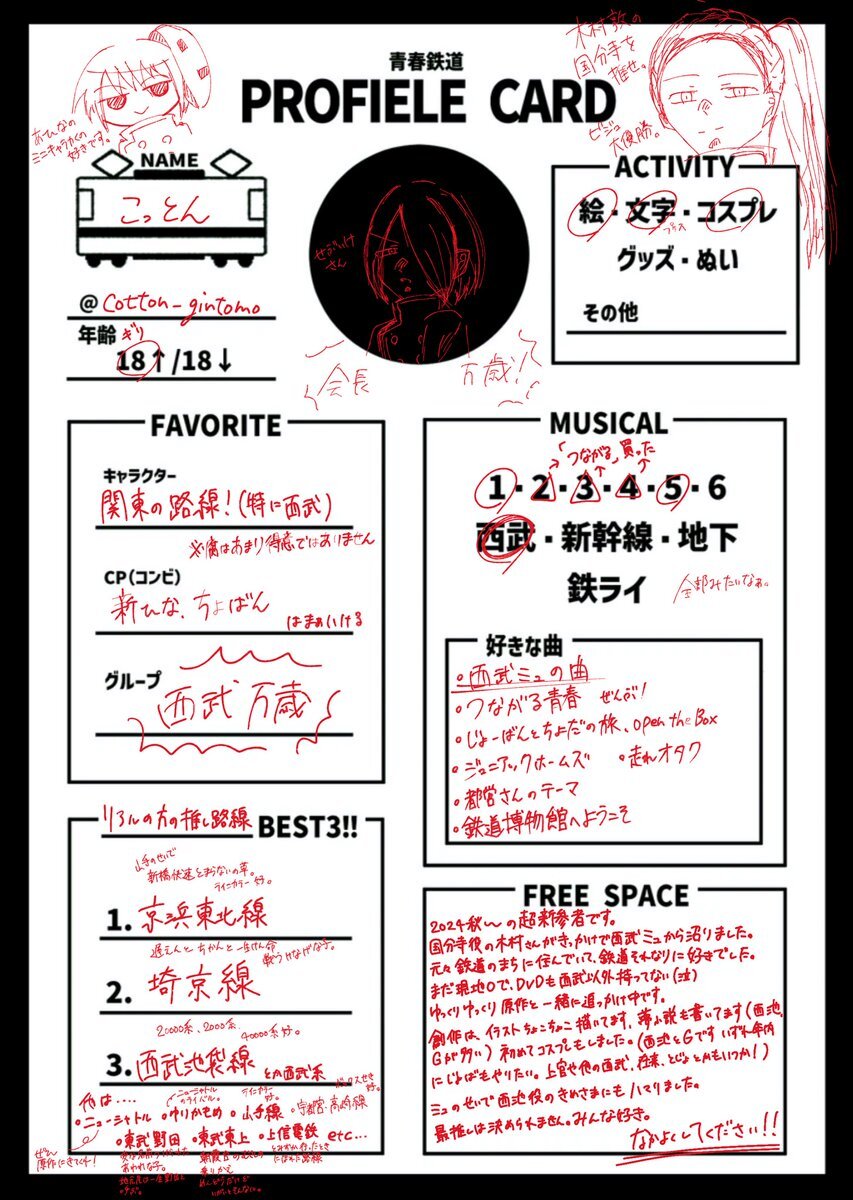 木村敦の
国分寺を
推せ。
ビジュ
大優勝。
青春鉄道
PROFIELE CARD
あひなの
ミニキャラかくの
好きです。
NAME
こっとん
@cotton_gintomo
年齢 ギリ
18↑/18↓
せぶいけ
さん
会長
万歳!
ACTIVITY
絵・文字・コスプレ
グッズ・ぬい
その他
FAVORITE
キャラクター
関東の路線!(特に西武)
※腐はあまり得意ではありません
CP(コンビ)
新ひな、ちょばん
はまぁいける
グループ
西武 万歳
MUSICAL
「つながる」買った
1・2・3・4・5・6
西武・新幹線・地下
鉄ライ
全部みたいなぁ。
好きな曲
・西武ミュの曲
・つながる青春 ぜんぶ!
・じょーばんとちよだの旅、open the Box
・ジュニアックホームズ ・走れオタク
・都営さんのテーマ
・鉄道博物館へようこそ
リアルの方の推し路線 BEST3!!
山手のせいで
新橋快速とまらないの草。
ラインカラー好。
1. 京浜東北線
遅えんとちかんと一生けん命
戦うけなげな子。
2. 埼京線
20000系、2000系
40000系好。
3. 西武池袋線 とか西武系
他は....
ニューシャトル
のライバル。
ラインカラー
好。
ボックスせき
好。
・ニューシャトル ・ゆりかもめ ・山手線 ・宇都宮・高崎線
・東武野田 ・東武東上 ・上信電鉄 etc...
ぜひ
原作にきてくれ!
FREE SPACE
2024秋〜の超新参者です。
国分寺役の木村さんがきっかけで西武ミュから沼りました。
元々鉄道のまちに住んでいて、鉄道それなりに好きでした。
まだ現地0で、DVDも西武以外持ってない(泣)
ゆっくりゆっくり原作と一緒に追っかけ中です。
創作は、イラストちょこちょこ描いてます、夢小説も書いてます(西池、
Gが多い) 初めてコスプレもしました。(西池とGです いずれ年内
にじょばもやりたい。上官や他の西武、在来、とじょとかもいつか!)
ミュのせいで西池役のきめさまにもハマりました。
最推しは決められません。みんな好き。
なかよくしてください!!